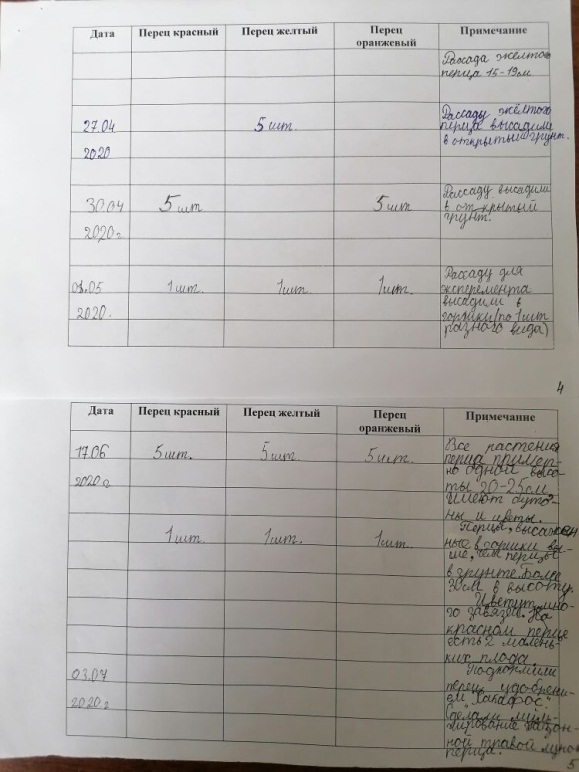 Дата Перец красный Перец желтый Перец оранжевый Примечание
Рассада жёлтого
перца 15-19см
27.04 5 шт. Рассаду жёлтого
перца высадили
2020 в открытый грунт.
30.04 5 шт 5 шт Рассаду высадили
в открытый
2020г. грунт.
01.05 1 шт. 1 шт. 1 шт. Рассаду для
эксперемента
2020. высадили в
горшки (по 1 шт
разного вида)
4
Дата Перец красный Перец желтый Перец оранжевый Примечание
17.06 5 шт. 5 шт. 5 шт. Все растения
перца пример-
2020г. но одной высо-
ты 20-25см
Имеют буто-
ны и цветы.
1 шт. 1 шт. 1 шт. Перцы, высажен-
ные в горшки вы-
ше, чем перцы
в грунте. Более
30см в высоту.
Цветут, мно-
го завязей. На
красном перце
есть 2 малень-
ких плода.
03.07 Подкормили
перец удобрени-
2020г ем
Сделали муль-
чирование
ной травой
перца.
5